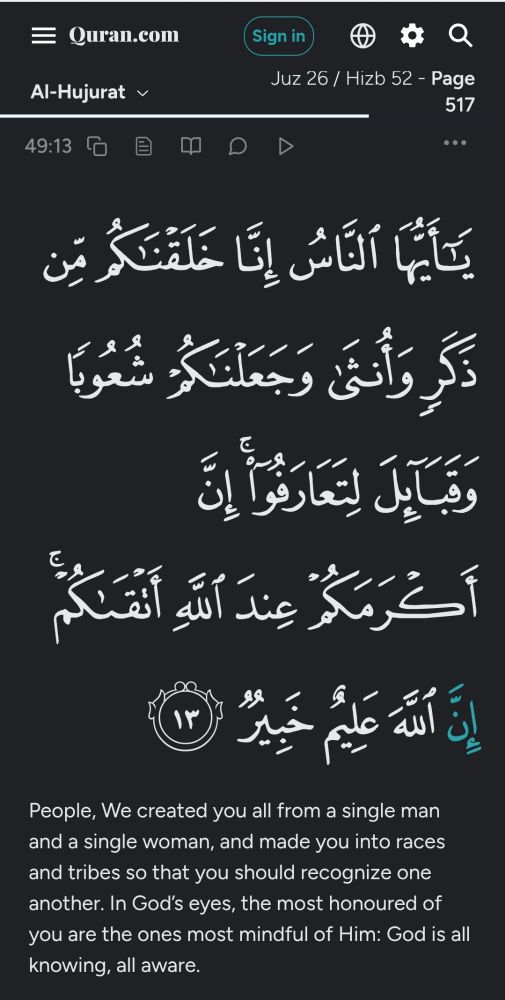 Quran.com
Sign in
Al-Hujurat
Juz 26 / Hizb 52 - Page
517
49:13
يَـٰٓأَيُّهَا ٱلنَّاسُ إِنَّا خَلَقْنَـٰكُم مِّن
ذَكَرٍۢ وَأُنثَىٰ وَجَعَلْنَـٰكُمْ شُعُوبًۭا
وَقَبَآئِلَ لِتَعَارَفُوٓا۟ ۚ إِنَّ
أَكْرَمَكُمْ عِندَ ٱللَّهِ أَتْقَىٰكُمْ ۚ
إِنَّ ٱللَّهَ عَلِيمٌ خَبِيرٌۭ ١٣
People, We created you all from a single man
and a single woman, and made you into races
and tribes so that you should recognize one
another. In God’s eyes, the most honoured of
you are the ones most mindful of Him: God is all
knowing, all aware.